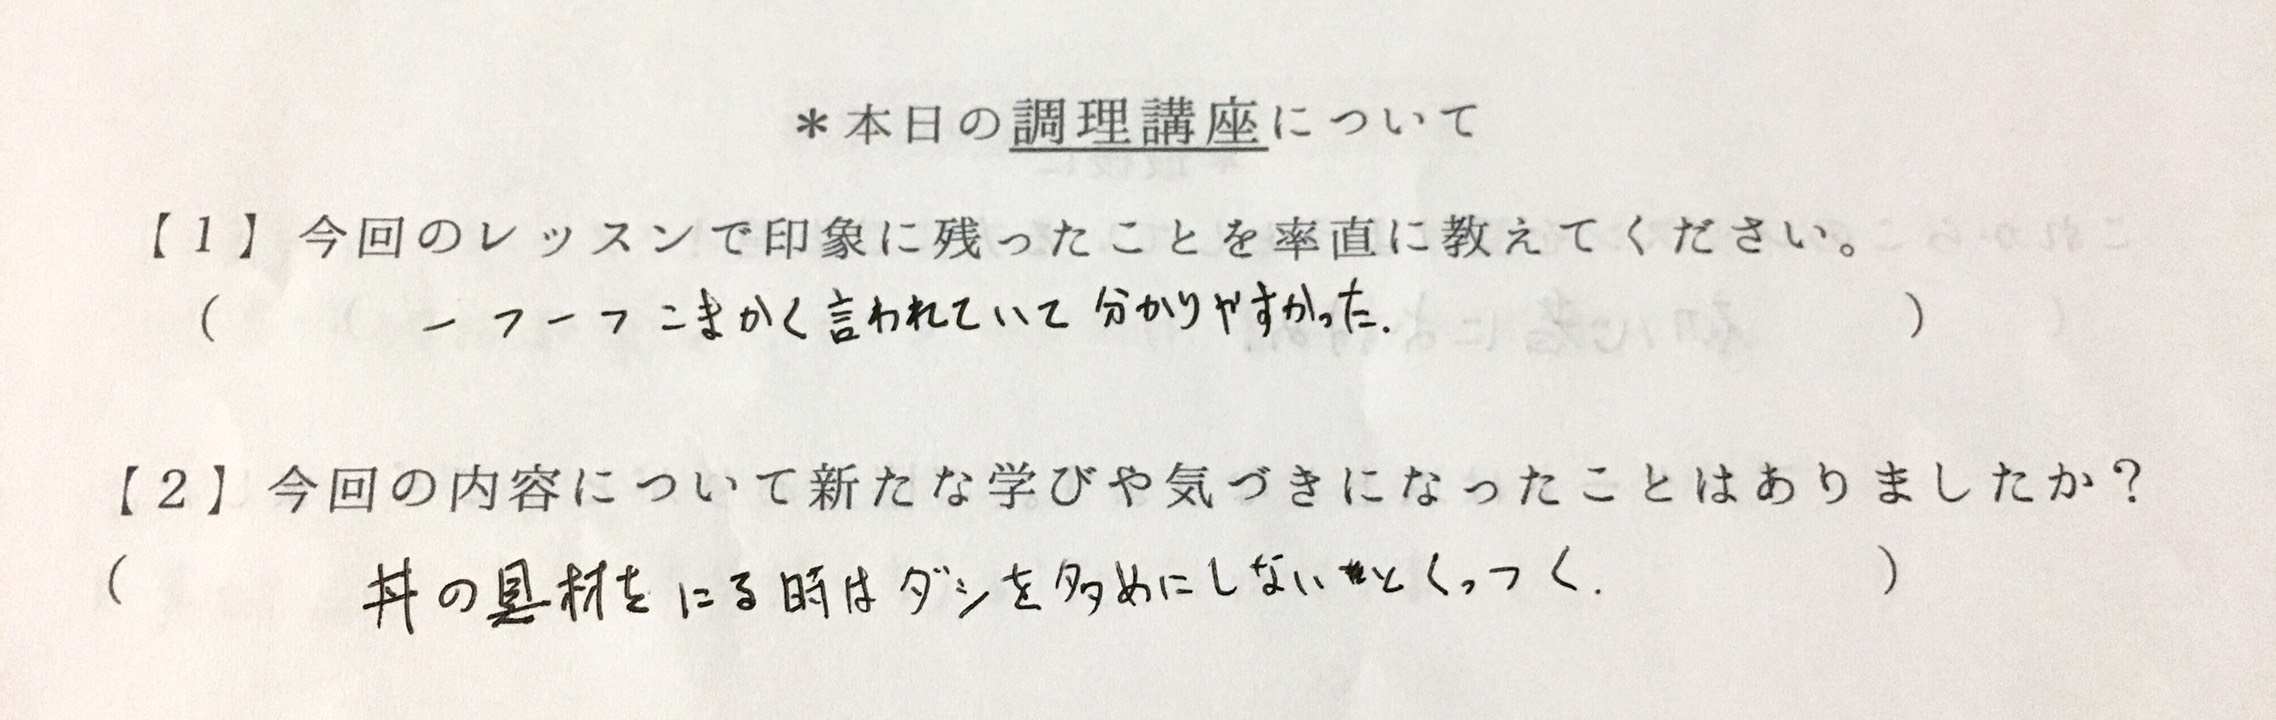 ＊本日の調理講座について
【1】今回のレッスンで印象に残ったことを率直に教えてください。
( 一つ一つこまかく言われていて分かりやすかった. )
【2】今回の内容について新たな学びや気づきになったことはありましたか？
( 丼の具材をにる時はダシを多めにしないとくっつく. )